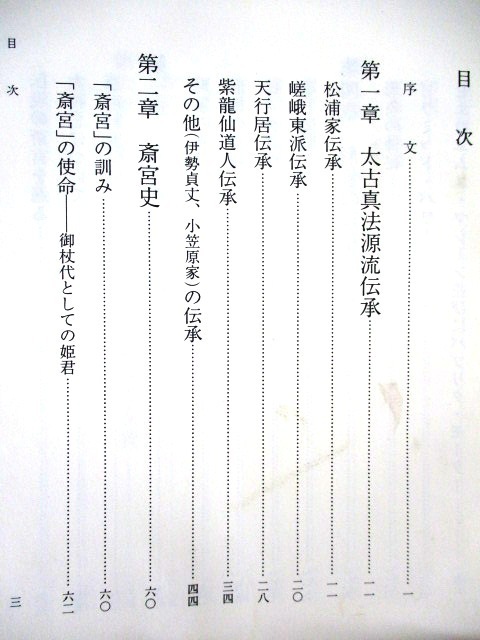 目次
序文……一
第一章 太古真法源流伝承……一一
松浦家伝承……一一
嵯峨東派伝承……二〇
天行居伝承……二八
紫龍仙道人伝承……三四
その他(伊勢貞丈、小笠原家)の伝承……四四
第二章 斎宮史……六〇
「斎宮」の訓み……六〇
「斎宮」の使命――御杖代としての姫君……六二
目次
三